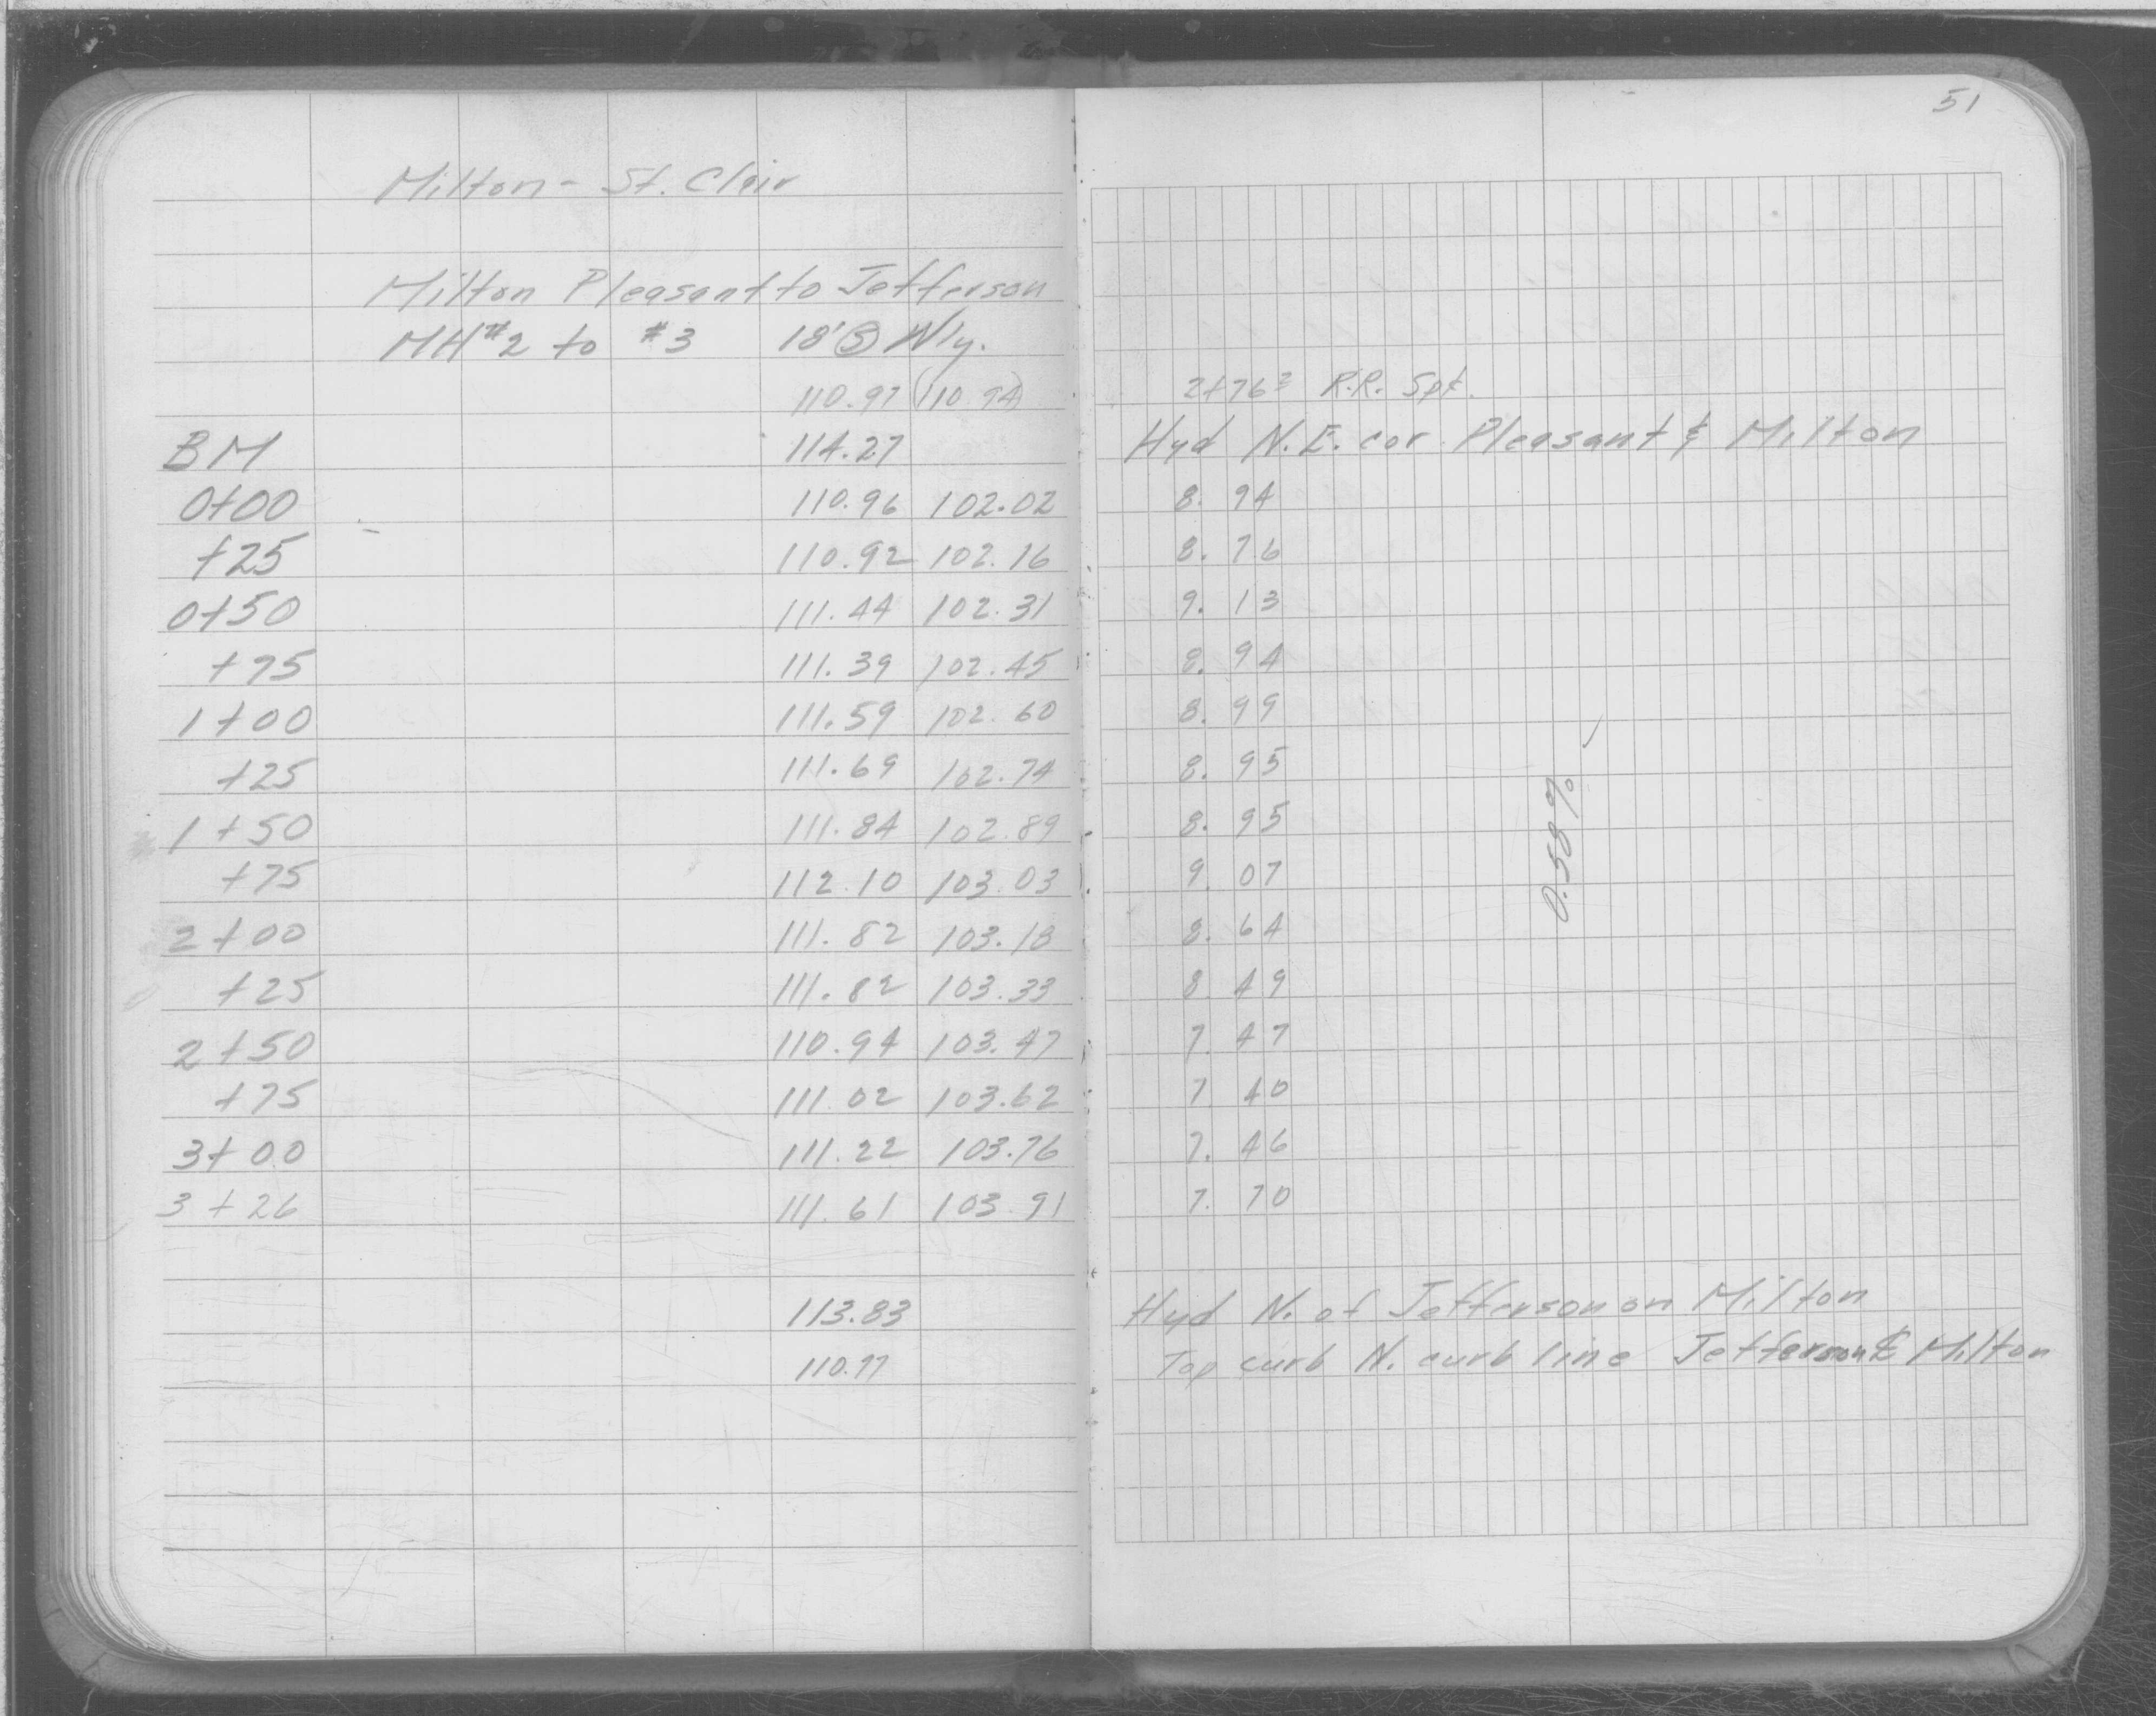 51
Milton - St. Clair
Milton Pleasant to Jefferson
MH #2 to #3 18' Ⓢ W'ly.
110.97 (110.94) 2+76² R.R. Spk.
BM 114.27 Hyd N.E. cor. Pleasant & Milton
0+00 110.96 102.02 8.94
+25 110.92 102.16 8.76
0+50 111.44 102.31 9.13
+75 111.39 102.45 8.94
1+00 111.59 102.60 8.99
+25 111.69 102.74 8.95
1+50 111.84 102.89 8.95
+75 112.10 103.03 9.07
2+00 111.82 103.18 8.64
+25 111.82 103.33 8.49
2+50 110.94 103.47 7.47
+75 111.02 103.62 7.40
3+00 111.22 103.76 7.46
3+26 111.61 103.91 7.70
0.58%
113.83 Hyd N. of Jefferson on Milton
110.77 Top curb N. curb line Jefferson & Milton